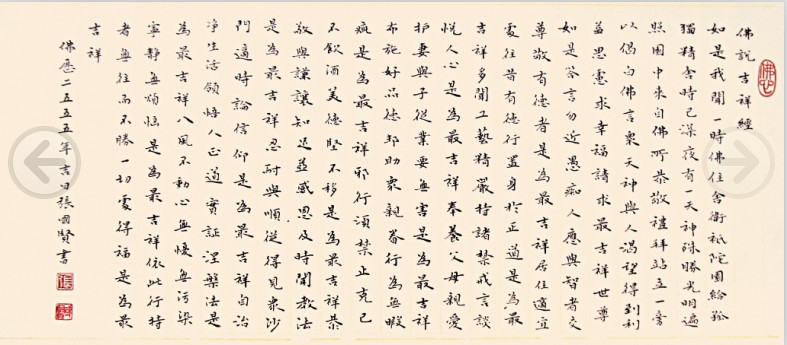 佛說吉祥經
如是我聞一時佛住舍衛祇陀園給孤
獨精舍時已深夜有一天神殊勝光明遍
照園中來自佛所恭敬禮拜站立一旁
以偈白佛言眾天神與人渴望得到利
益思慮求幸福請求最吉祥世尊
如是答言勿近愚痴人應與智者交
尊敬有德者是為最吉祥居住適宜
處往昔有德行置身於正道是為最
吉祥多聞工藝精嚴持諸禁戒言談
悅人心是為最吉祥奉養父母親愛
护妻與子從業要無害是為最吉祥
布施好品德邦助眾親眷行為無暇
疵是為最吉祥邪行須禁止克己
不飲酒美德堅不移是為最吉祥恭
敬與謙讓知足並感恩及時聞教法
是為最吉祥忍耐與順從得見眾沙
門適時論信仰是為最吉祥自治
淨生活領悟八正道實証涅槃法是
為最吉祥八風不動心無憂無污染
寧靜無煩惱是為最吉祥依此行持
者無往而不勝一切處得福是為最
吉祥
佛曆二五五五年吉日張國賢書